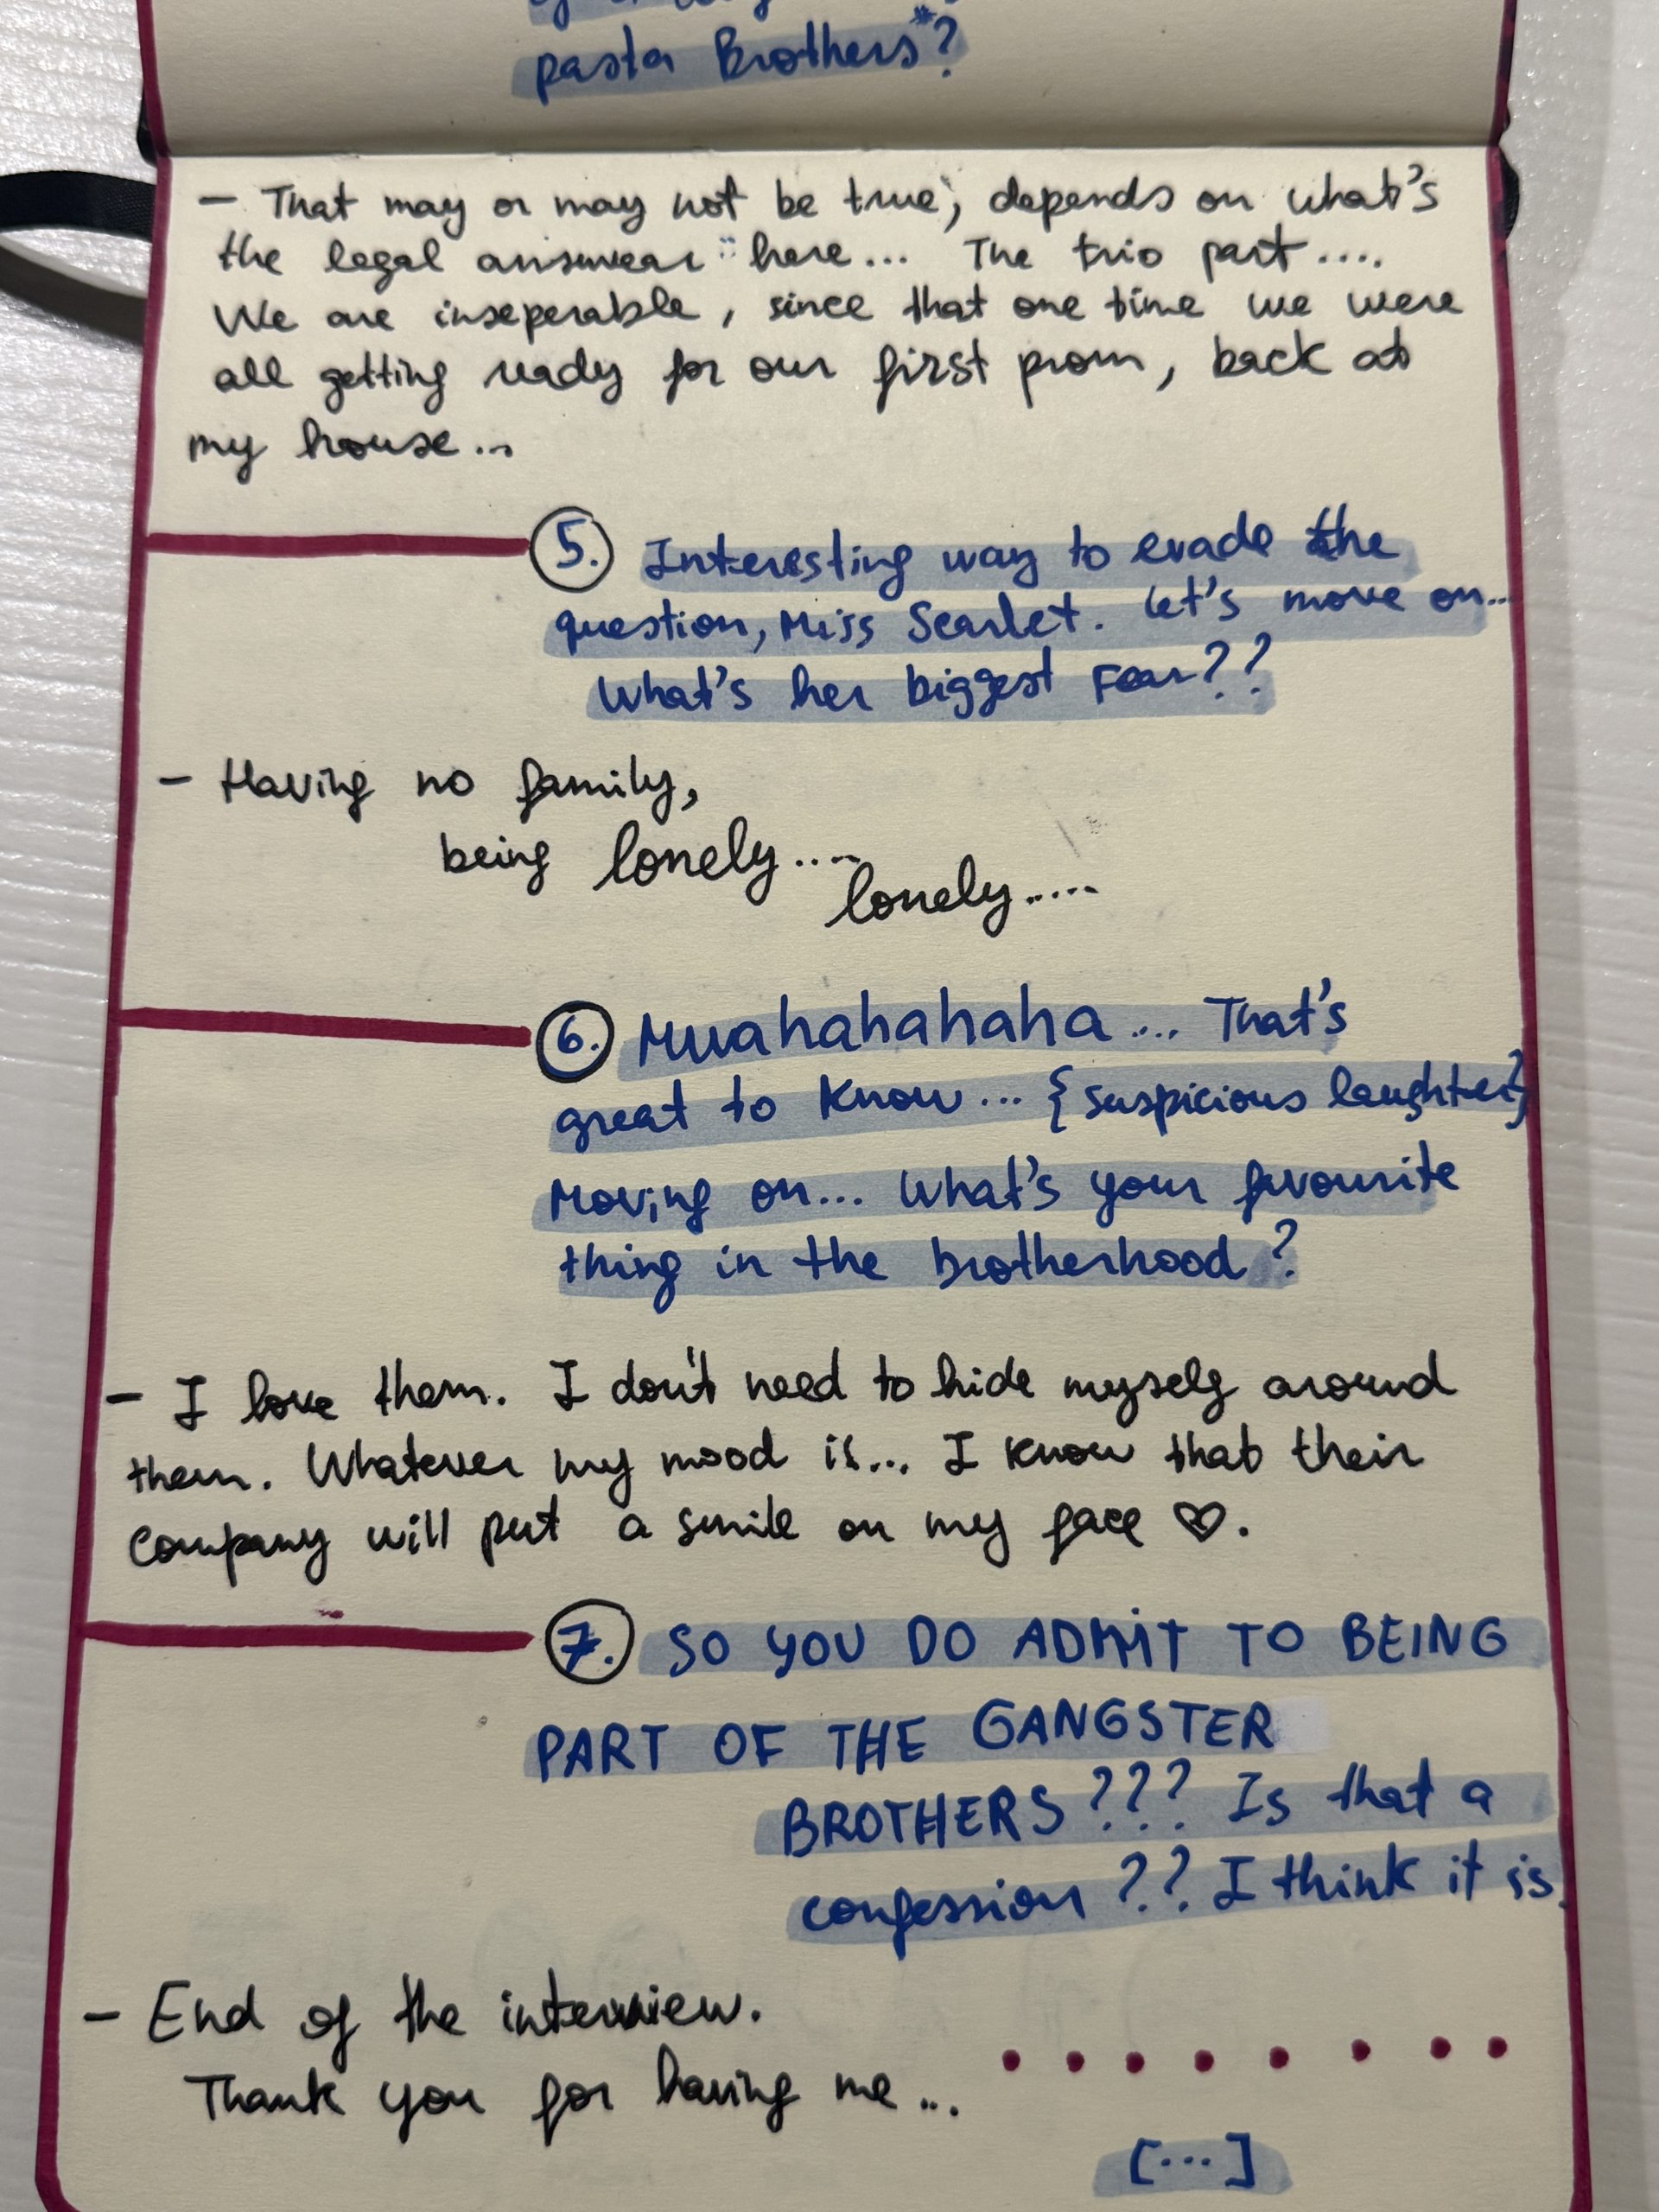 pasta Brothers*?
- That may or may not be true; depends on what's
the legal answear "here... The trio part....
We are inseperable, since that one time we were
all getting ready for our first prom, back at
my house...
5. Interesting way to evade the
question, Miss Scarlet. Let's move on...
What's her biggest Fear??
- Having no family,
being lonely....
lonely.....
6. Muahahahaha... That's
great to know... {suspicious laughter}
Moving on... What's your favourite
thing in the brotherhood?
- I love them. I don't need to hide myself around
them. Whatever my mood is... I know that their
company will put a smile on my face ♡.
7. SO YOU DO ADMIT TO BEING
PART OF THE GANGSTER
BROTHERS??? Is that a
confession?? I think it is.
- End of the interview.
Thank you for having me...
[...]